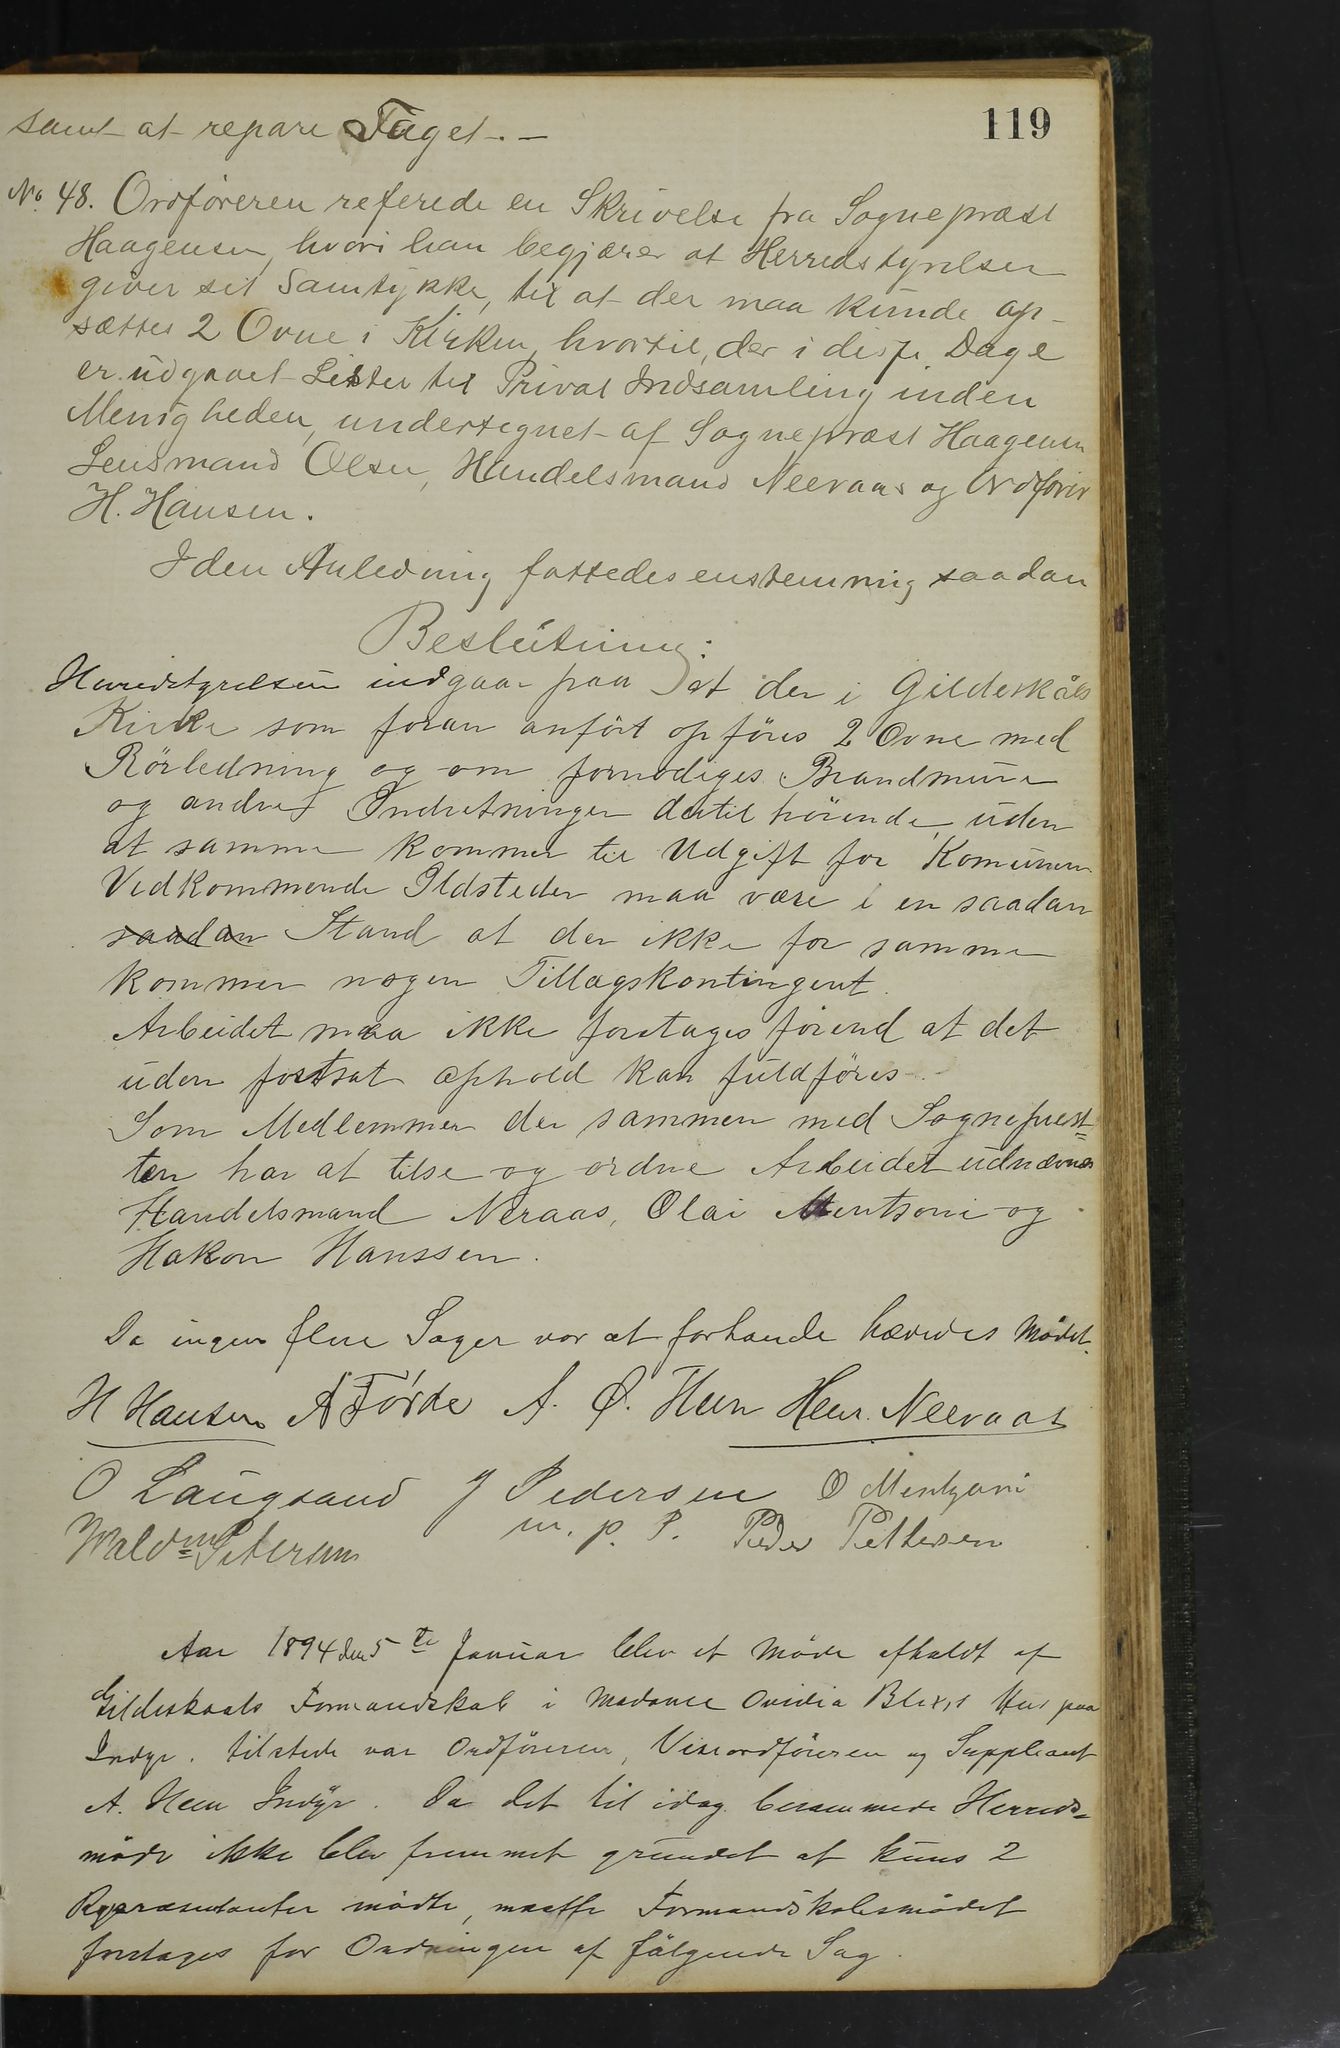 119
samt at repare Taget.-
No. 48. Ordføreren referede en Skrivelse fra Sognepræst
Haagensen, hvori han begjærer at Herredstyrelsen
giver sit Samtykke, til at der maa kunde op-
sættes 2 Ovne i Kirken, hvortil, der i disse Dage
er udgaaet Lister til Privat Indsamling inden
Menigheden, undertegnet af Sognepræst Haagensen
Lensmand Olsen, Handelsmand Neeraas og Ordfører
H. Hansen.
I den Anledning fattedes enstemmig saadan
Beslutning:
Herredstyrelsen indgaar paa at der i Gildeskåls
Kirke som foran anført opføres 2 Ovne med
Rörledning og om fornødiges Brandmure
og andre Indretninger dertil hörende, uden
at samme kommer til Udgift for Komunen
Vedkommende Ildsteder maa være i en saadan
saadan Stand at der ikke for samme
kommer nogen Tillægskontingent.
Arbeidet maa ikke foretages förend at det
uden fortsat ophold kan fuldføres.
Som Medlemmer der sammen med Sogneprest=
ten har at tilse og ordne Arbeidet udnævnes
Handelsmand Neraas, Olai Mentsoni og
Hakon Hanssen.
Da ingen flere Sager var at forhande hævedes Mödet.
H Hansen A Förde A. Ø. Heen Henr. Neeraas
O Langsand J Pedersen O Mentzoni
m. p. P. Peder Pettersen
Waldm Petersen
Aar 1894 den 5te Januar blev et Möde afholdt af
Gildeskaals Formandskab i Madame Ovidia Blix's Hus paa
Indyr. tilstede var Ordföreren, Viseordföreren og Suppleant
A. Heen Indyr. Da det til idag berammede Herreds=
möde ikke blev fremmet grundet at kuns 2
Repræsentanter mödte, maatte Formandskabsmödet
foretages for Ordningen af fölgende Sag.